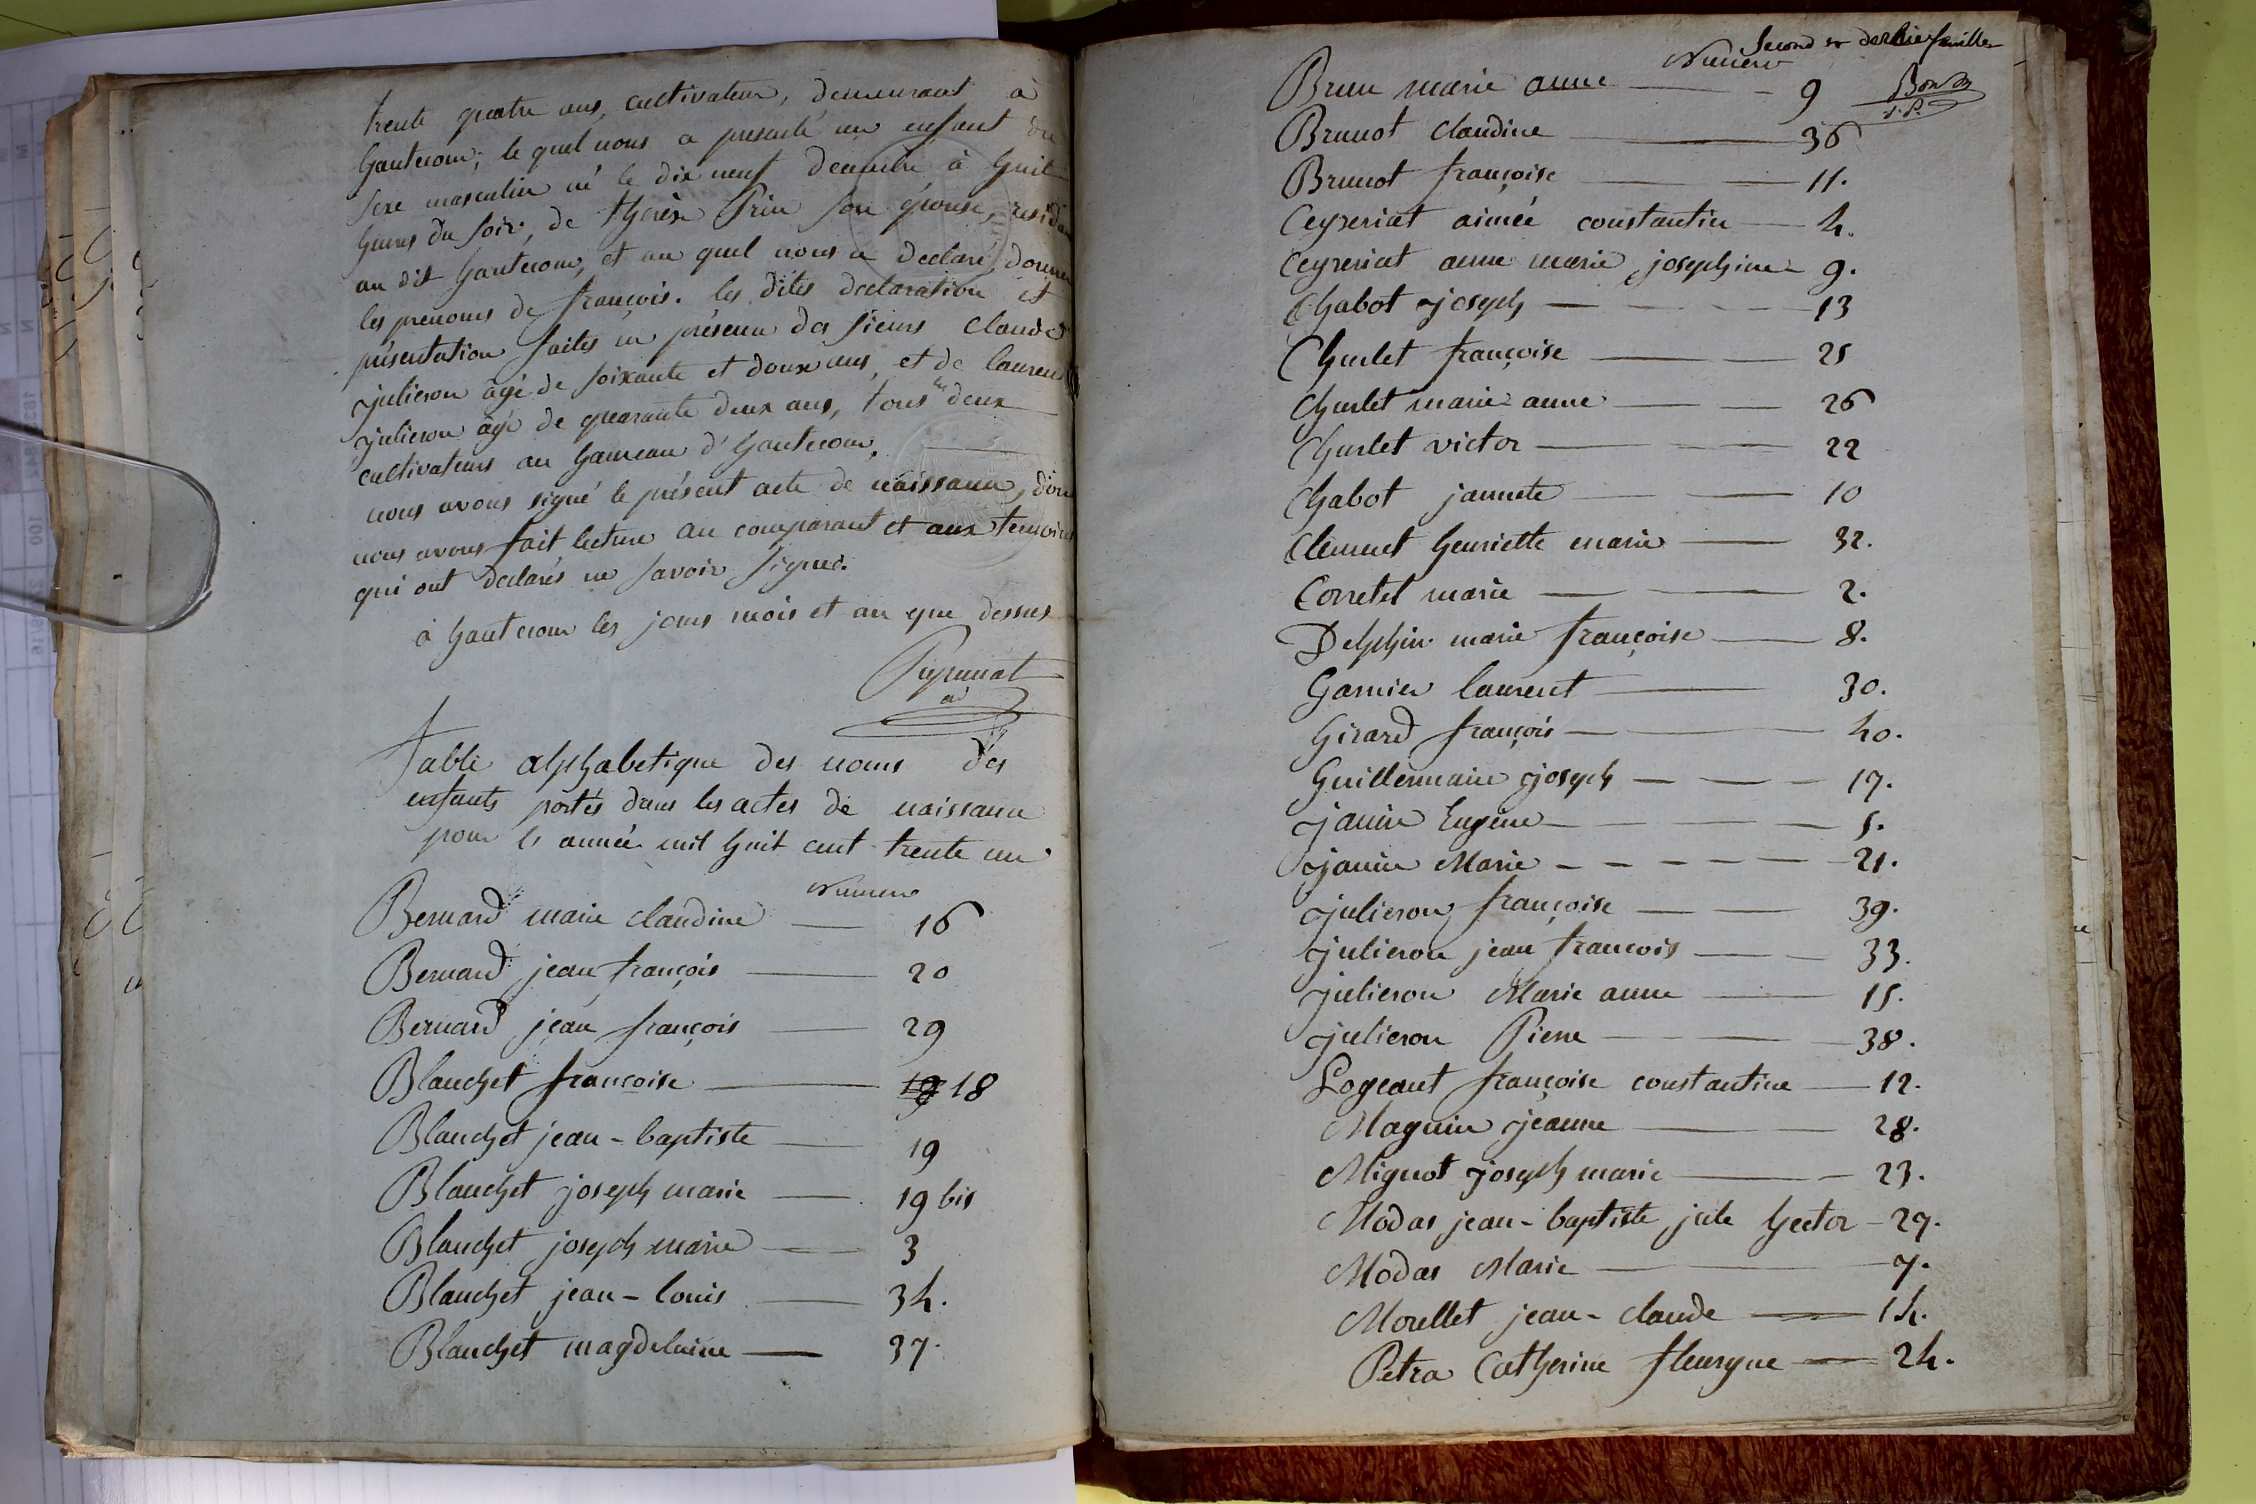 trente quatre ans, cultivateur, demeurant à
hautecour; le quel nous a presenté un enfant du
sexe masculin né le dix neuf decembre à huit
heures du soir, de thérèse Prin son épouse, resid
au dit hautecour, et au quel nous a declaré donner
les prenoms de françois. les dites declaration et
présentation faites en présence des sieurs claude
julieron âgé de soixante et douze ans, et de laurent
julieron âgé de quarante deux ans, tous deux
cultivateurs au hameau d'hautecour,
nous avons signé le présent acte de naissance, dont
nous avons fait lecture au comparant et aux temoins
qui ont declarés ne savoir signer.
à hautecour les jours mois et an que dessus
Table alphabetique des noms des
enfants portés dans les actes de naissance
pour l'année mil huit cent trente un
Numero
Bernard marie claudine — 16
Bernard jean françois — 20
Bernard jean françois — 29
Blanchet françoise — 19 18
Blanchet jean-baptiste — 19
Blanchet joseph marie — 19 bis
Blanchet joseph marie — 3
Blanchet jean-louis — 34.
Blanchet magdelaine — 37.
Second et dernier feuillet
Numero
Brun marie anne — 9
Brunot claudine — 36
Brunot françoise — 11.
Ceyzeriat aimée constantin — 4.
Ceyzeriat anne marie josephine — 9.
Chabot joseph — 13
Churlet françoise — 25
Churlet marie anne — 26
Churlet victor — 22
Chabot jannete — 10
Clement henriette marie — 32.
Corretel marie — 2.
Delphin marie françoise — 8.
Garnier laurent — 30.
Girard françois — 40.
Guillermain joseph — 17.
janin Eugène — 5.
janin Marie — 21.
julieron françoise — 39.
julieron jean françois — 33.
julieron Marie anne — 15.
julieron Pierre — 38.
Logeant françoise constantine — 12.
Maguin jeanne — 28.
Mignot joseph marie — 23.
Modas jean-baptiste jule hector — 27.
Modas Marie — 7.
Morellet jean-claude — 14.
Petra Catherine fleuryne — 24.